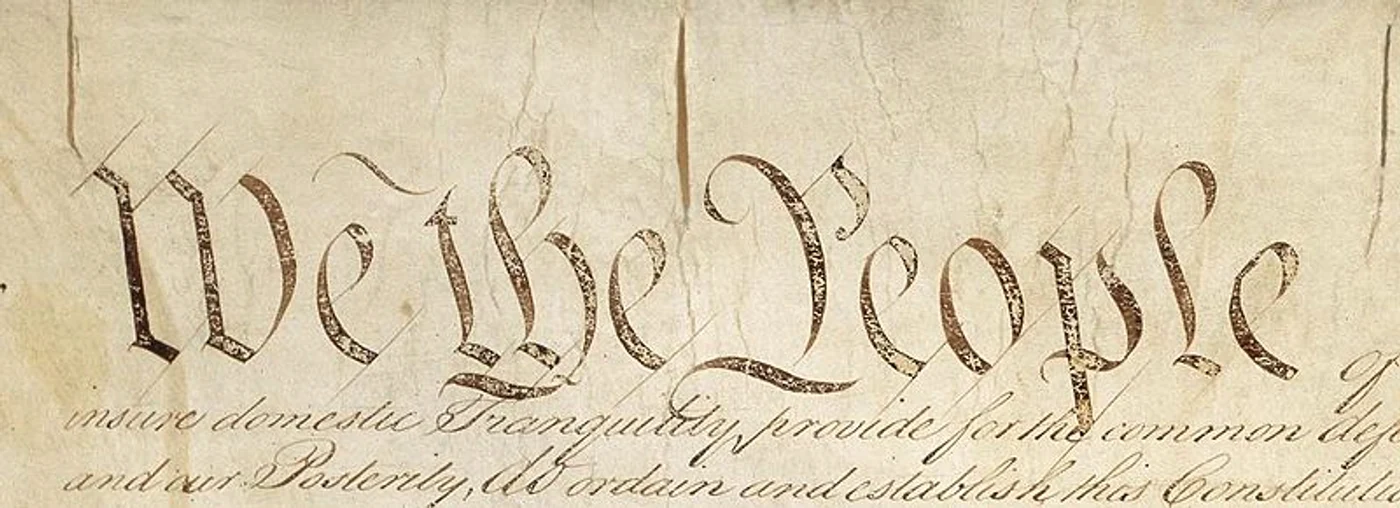 We the People of
insure domestic Tranquility, provide for the common
and our Posterity, do ordain and establish this